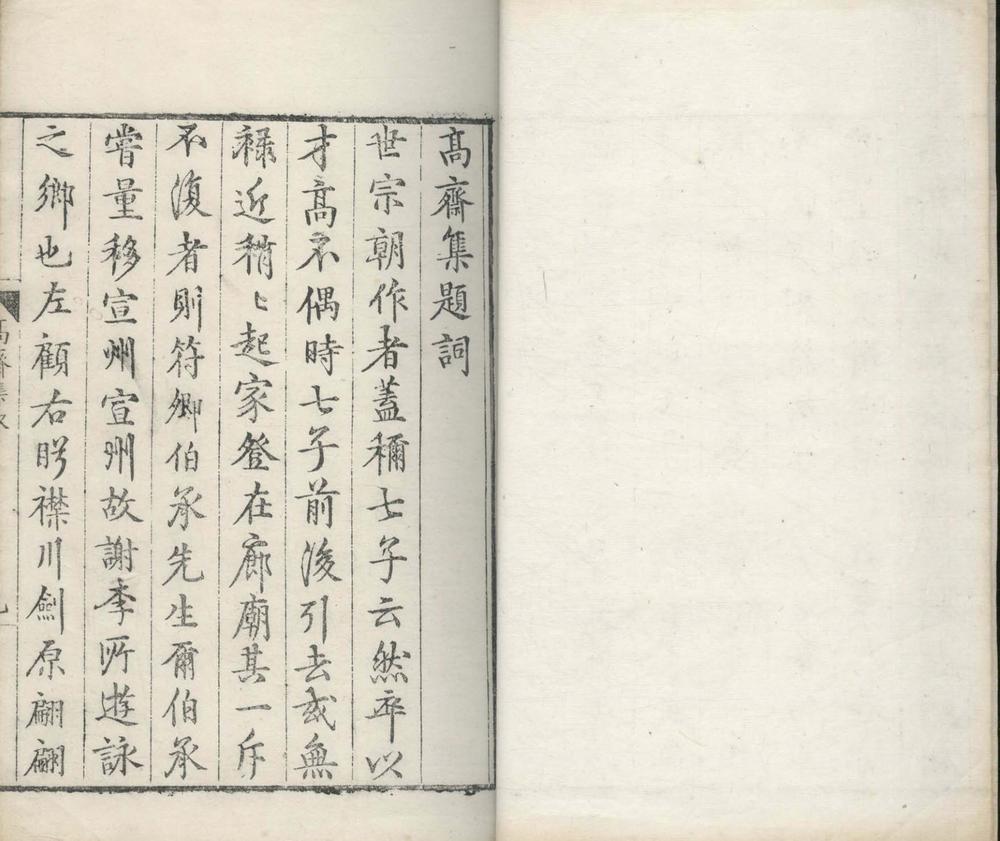 高齋集題詞
世宗朝作者蓋稱七子云然率以
才高不偶時七子前後引去或無
祿近稍〻起家登在廊廟其一斥
不復者則符卿伯承先生爾伯承
嘗量移宣州宣州故謝李所遊詠
之鄉也左顧右眄襟川劍原翩翩
高齋集